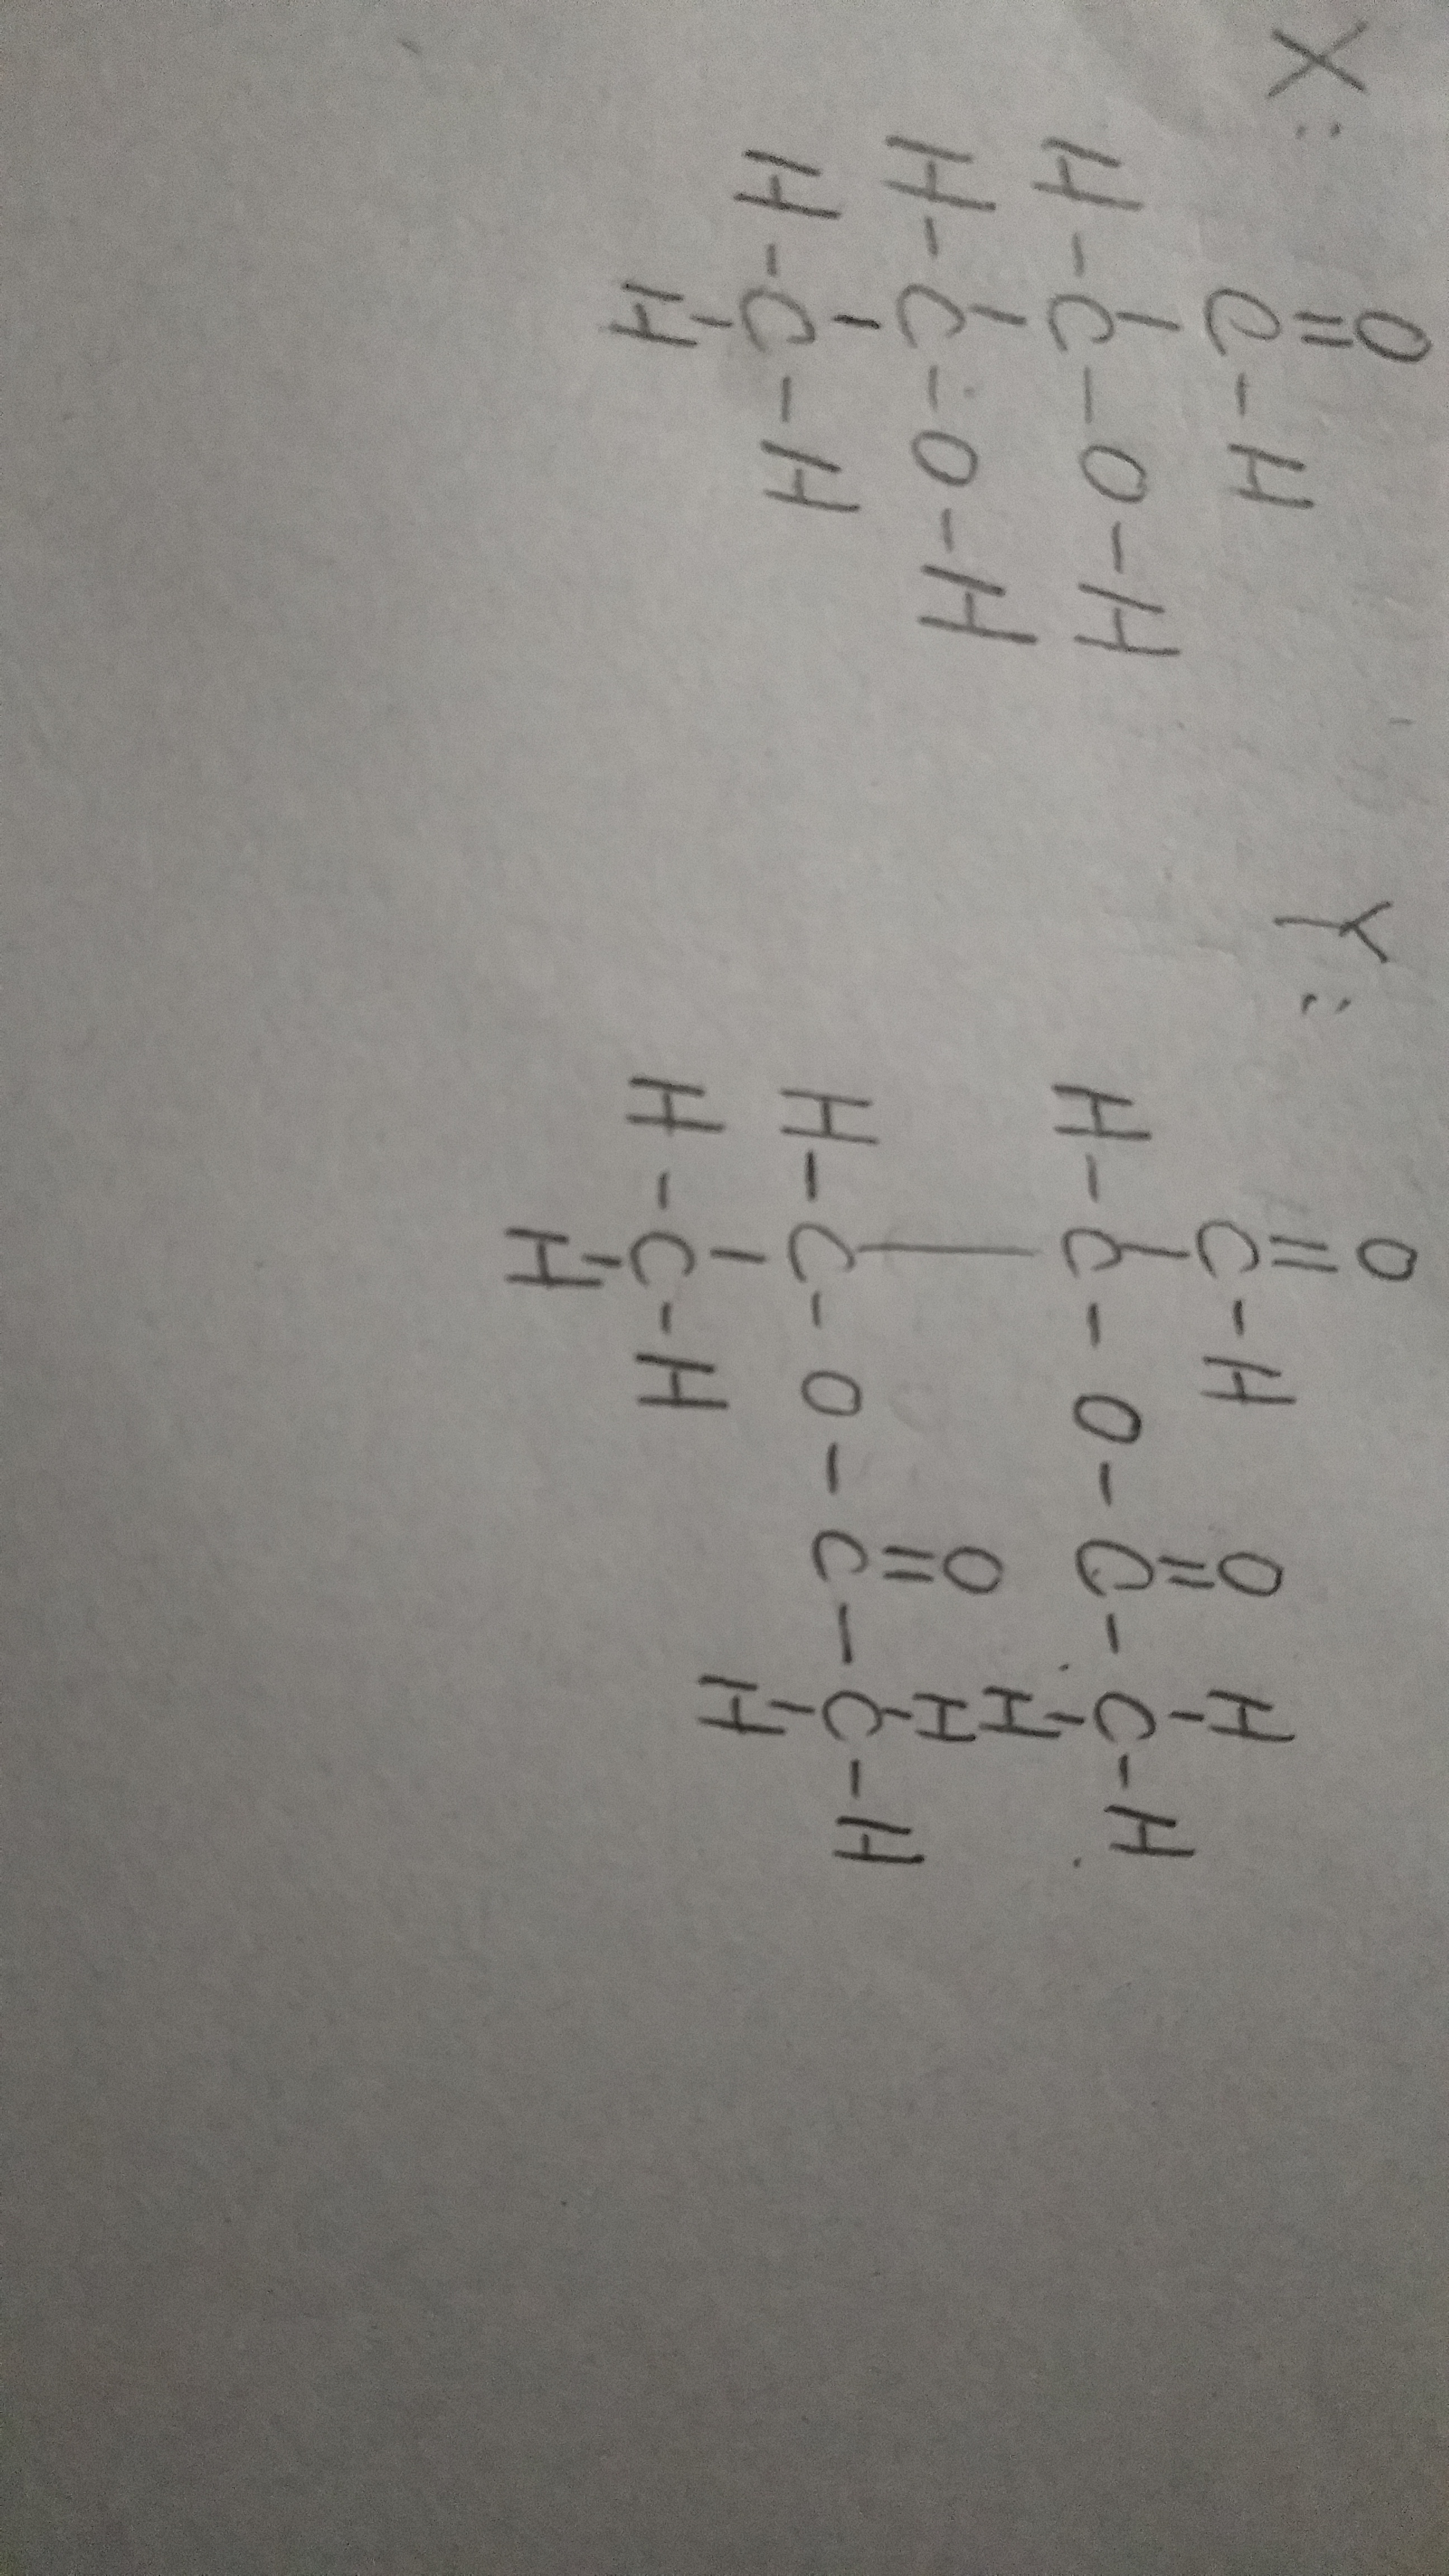 X:
O
||
C-H
|
H-C-O-H
|
H-C-O-H
|
H-C-H
|
H
Y:
O
||
C-H O H
| || |
H-C-O-C-C-H
| |
H
O H
|| |
H-C-O-C-C-H
| |
H
H-C-H
|
H